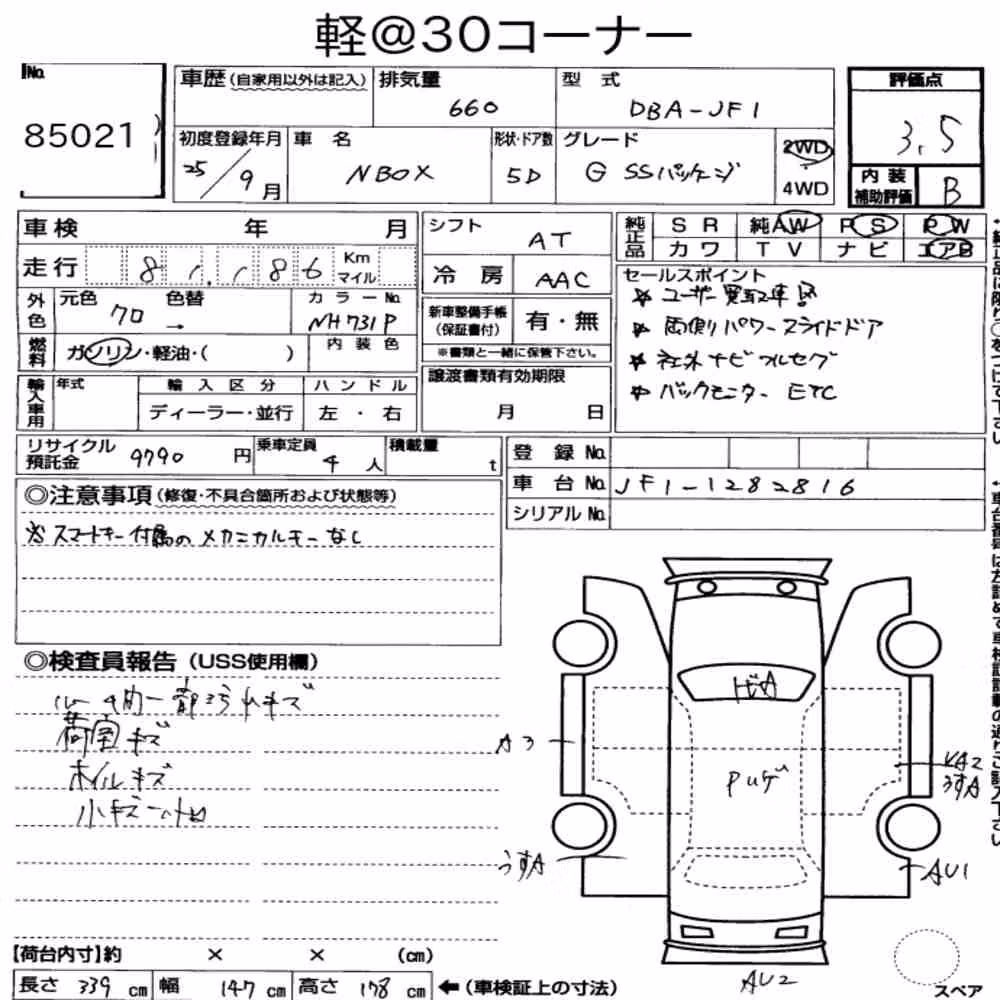 軽@30コーナー
No.
85021
車歴(自家用以外は記入)
排気量
660
型 式
DBA-JF1
評価点
3.5
初度登録年月
25/9月
車 名
NBOX
形状・ドア数
5D
グレード
G SSパッケージ
2WD
4WD
内 装
補助評価
B
車検 年 月
走行 8 1, 1 8 6 Km
マイル
外色
元色 70 →
色替
カラーNo.
NH731P
燃料
ガソリン・軽油・( )
内 装 色
輸入車用
年式
輸 入 区 分
ディーラー・並行
ハ ン ド ル
左 ・ 右
シフト
AT
冷 房
AAC
新車整備手帳
(保証書付)
有・無
※書類と一緒に保管下さい。
譲渡書類有効期限
月 日
純正品
S R 純AW P S P W
カ ワ T V ナ ビ エアB
セールスポイント
☆ ユーザー買取車!!
☆ 両側パワースライドドア
☆ 社外ナビフルセグ
☆ バックモニター ETC
リサイクル
預託金
9790 円
乗車定員
4 人
積載量
t
登 録 No.
車 台 No.
JF1-1282816
シリアル No.
◎注意事項(修復・不具合箇所および状態等)
※スマートキー付属のメカニカルキーなし
◎検査員報告(USS使用欄)
荷室キズ
ホイルキズ
A3
PUゲ
うすA
うすA
AU1
AU2
スペア
【荷台内寸】約 × × (cm)
長さ 339 cm
幅 147 cm
高さ 178 cm
←(車検証上の寸法)